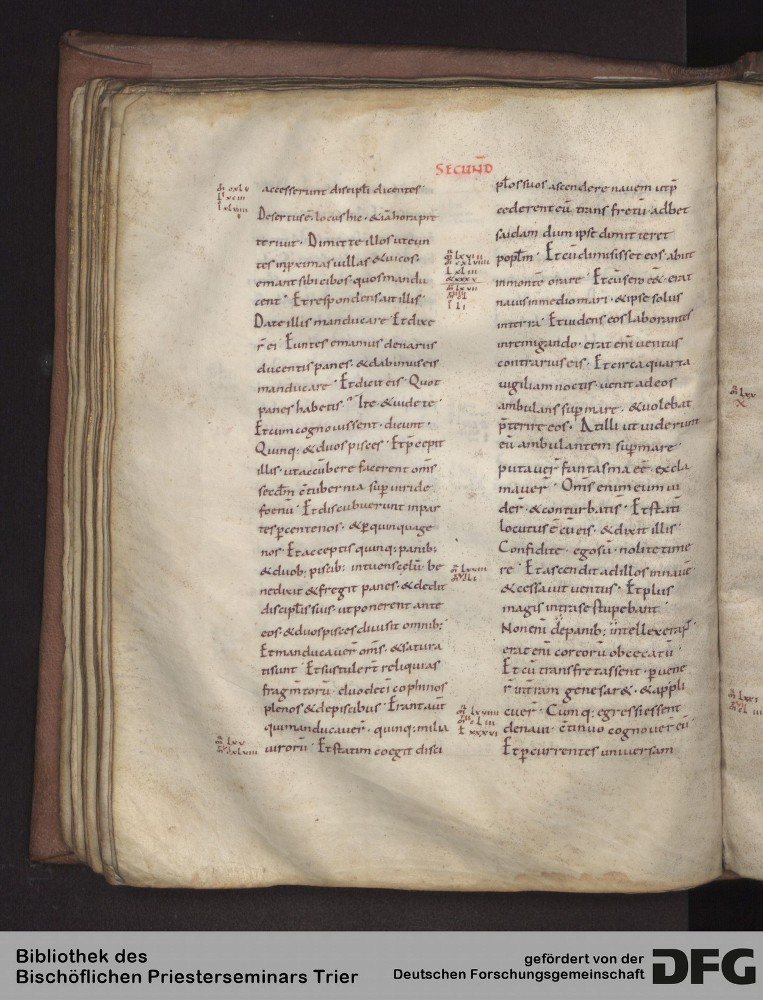 SECUND̄
accesserunt discipłi dicentes·
Desertus ē· locus hic· & iā hora prę
teriuit· Dimitte illos ut eun
tes inproximas uillas & uicos·
emant sibi cibos· quos mandu
cent· Et respondens ait illis·
Date illis manducare· Et dixe
r̄ ei· Euntes emamus denariis
ducentis panes· & dabimus eis
manducare· Et dicit eis· Quot
panes habetis· Ite & uidete·
Et cum cognouissent· dicunt·
Quinq; & duos pisces· Et p̄cepit
illis· ut accūbere facerent om̄s
secdm̄ c̄tubernia sup̄ uiride
foenū· Et discubuerunt in par
tes p̱ centenos· & p̱ quinquage
nos· Et acceptis quinq; panib;
& duob; piscib; intuens cęlū· be
nedixit & fregit panes· & dedit
discipłis suis· ut ponerent ante
eos· & duos pisces diuisit omnib;
Et manducauer̄ om̄s· & satura
ti sunt· Et sustuler̄t reliquias
fragm̄torū· duodeci cophinos
plenos & de piscibus· Erant aūt
qui manducauer̄· quinq; milia
uirorū· Et statim coegit disci
płos suos ascendere nauem ut p̄
cederent eū trans fretū· ad bet
saidam dum ipse dimitteret
popłm· Et cū dimisisset eos· abiit
in monte orare· Et cū sero eē&· erat
nauis in medio mari· & ipse solus
in terra· Et uidens eos laborantes
in remigando· erat eni uentus
contrarius eis· Et circa quarta
uigiliam noctis· uenit ad eos
ambulans sup̄ mare· & uolebat
p̄terire eos· At illi ut uiderunt
eū ambulantem sup̄ mare·
putauer̄ fantasma eē· & excla
mauer̄· Om̄s enim eum ui
der̄· & conturbati s̄· Et stati
locutus ē cū eis· & dixit illis·
Confidite· ego sū· nolite time
re· Et ascendit ad illos in nauē
& cessauit uentus· Et plus
magis intra se stupebant·
Non eni de panib; intellexerant
erat eni cor eorū obcecatū·
Et cū transfretassent· p̱uene
r̄ in tram genesar&· & appli
cuer̄· Cumq; egressi essent
de naui· c̄tinuo cognouer̄ eū·
Et p̱currentes uniuersam
Bibliothek des
Bischöflichen Priesterseminars Trier
gefördert von der
Deutschen Forschungsgemeinschaft
DFG